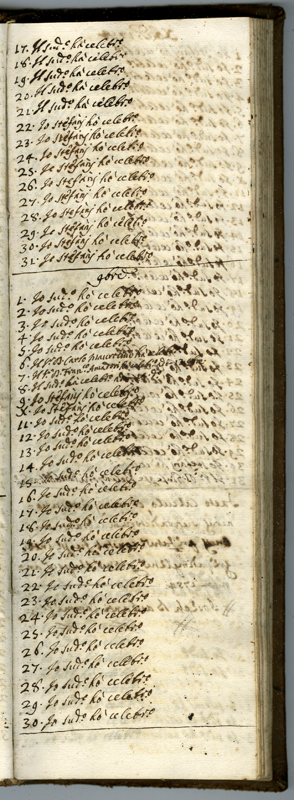 17. Il sud.o hà celebr.o
18. Il sud.o hà celebr.o
19. Il sud.o hà celebr.o
20. Il sud.o hà celebr.o
21. Il sud.o hà celebr.o
22. Io Stefanj hò celebr.o
23. Io Stefanj hò celebr.o
24. Io Stefanj hò celebr.o
25. Io Stefanj hò celebr.o
26. Io Stefanj hò celebr.o
27. Io Stefanj hò celebr.o
28. Io Stefanj hò celebr.o
29. Io Stefanj hò celebr.o
30. Io Stefanj hò celebr.o
31. Io Stefanj hò celebr.o
9bre
1. Io sud.o hò celebr.o
2. Io sud.o hò celebr.o
3. Io sud.o hò celebr.o
4. Io sud.o hò celebr.o
5. Io sud.o hò celebr.o
6. Il D. Carlo
7. Il D. Fran.co
8. Il sud.o hà celebr.o
9. Io Stefanj hò celebr.o
X. Io Stefanj hò celebr.o
11. Io sud.o hò celebr.o
12. Io sud.o hò celebr.o
13. Io sud.o hò celebr.o
14. Io sud.o hò celebr.o
15. Io sud.o hò celebr.o
16. Io sud.o hò celebr.o
17. Io sud.o hò celebr.o
18. Io sud.o hò celebr.o
19. Io sud.o hò celebr.o
20. Io sud.o hò celebr.o
21. Io sud.o hò celebr.o
22. Io sud.o hò celebr.o
23. Io sud.o hò celebr.o
24. Io sud.o hò celebr.o
25. Io sud.o hò celebr.o
26. Io sud.o hò celebr.o
27. Io sud.o hò celebr.o
28. Io sud.o hò celebr.o
29. Io sud.o hò celebr.o
30. Io sud.o hò celebr.o